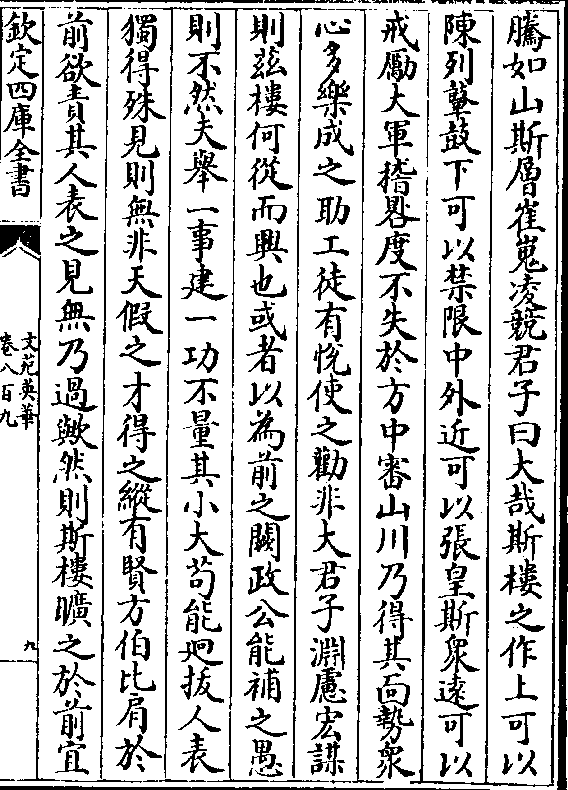 騰如山斯層崔嵬凌競君子曰大哉斯樓之作上可以
陳列鼖鼓下可以禁限中外近可以張皇斯衆逺可以
戒勵大軍稽晷度不失於方中審山川乃得其面勢衆
心多樂成之助工徒有恱使之勸非大君子淵慮宏謀
則兹樓何從而興也或者以為前之闕政公能補之愚
則不然夫舉一事建一功不量其小大苟能迥拔人表
獨得殊見則無非天假之才得之縱有賢方伯比肩於
前欲責其人表之見無乃過歟然則斯樓曠之於前宜
欽定四庫全書
文苑英華
卷八百九
九